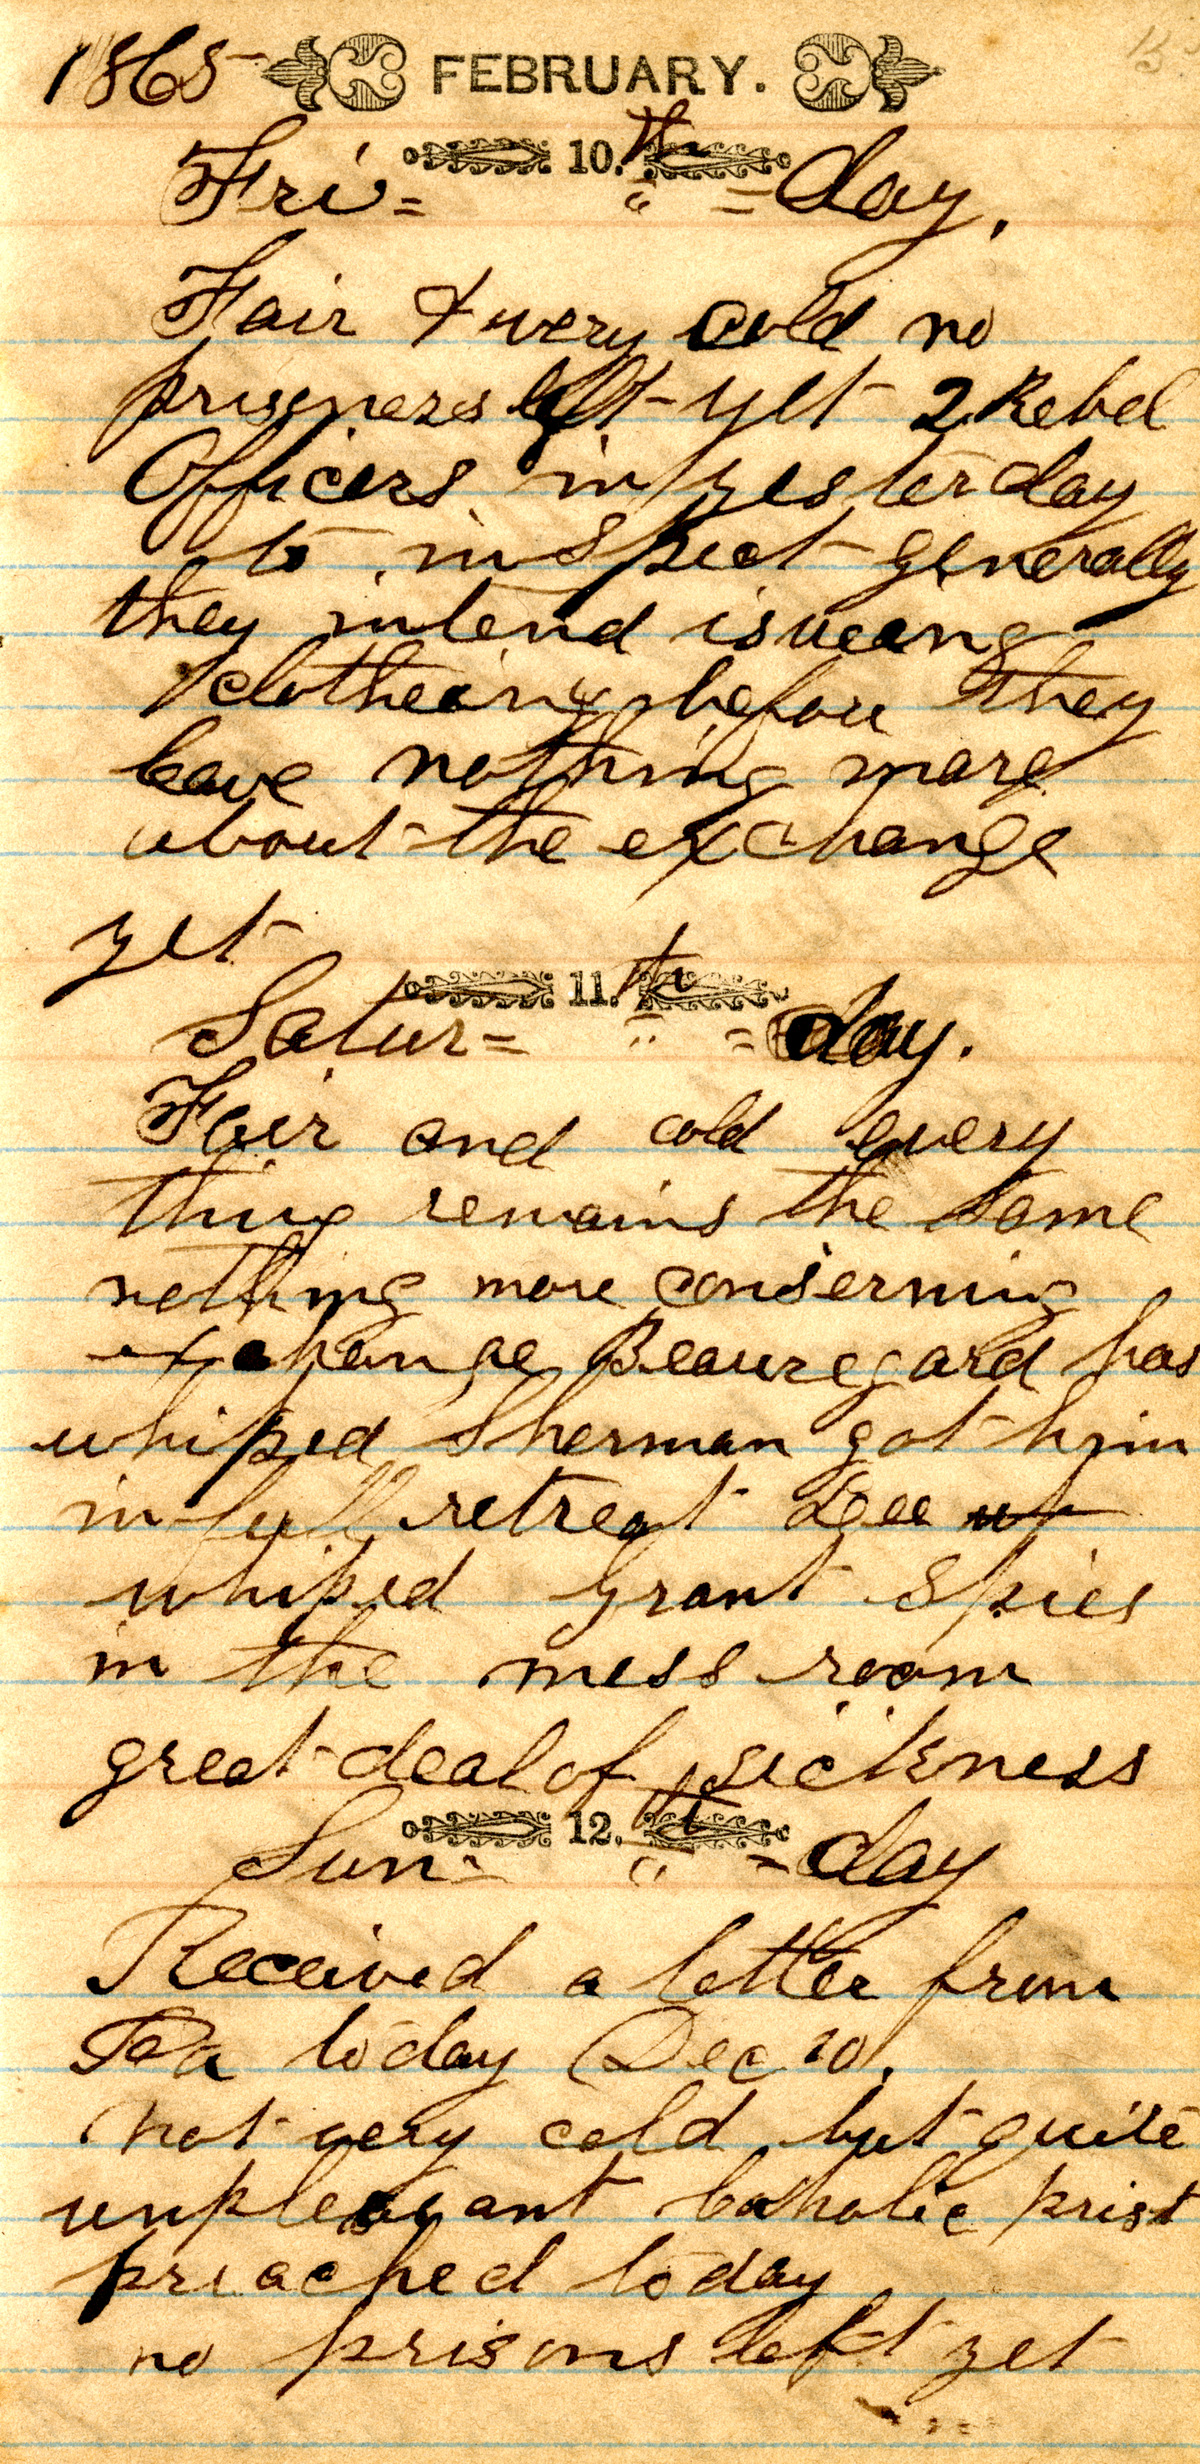 1865 FEBRUARY.
10. th
Fri = " = day.
Fair & very cold no
prisiners left yet 2 Rebel
Officers in yesterday
to inspect generally
they intend isueing
clotheing before they
leave nothing more
about the exchange
yet
11. th
Satur = " = day.
Fair and cold every
thing remains the same
nothing more conserning
exchange Beauregard has
whiped Sherman got him
in full retreat Lee
whiped Grant Spies
in the mess room
great deal of sickness
12. th
Sun = " = day
Received a letter from
today Dec 20.
not very cold but quite
unpleasant Catholic prist
preached today
no prisons left yet